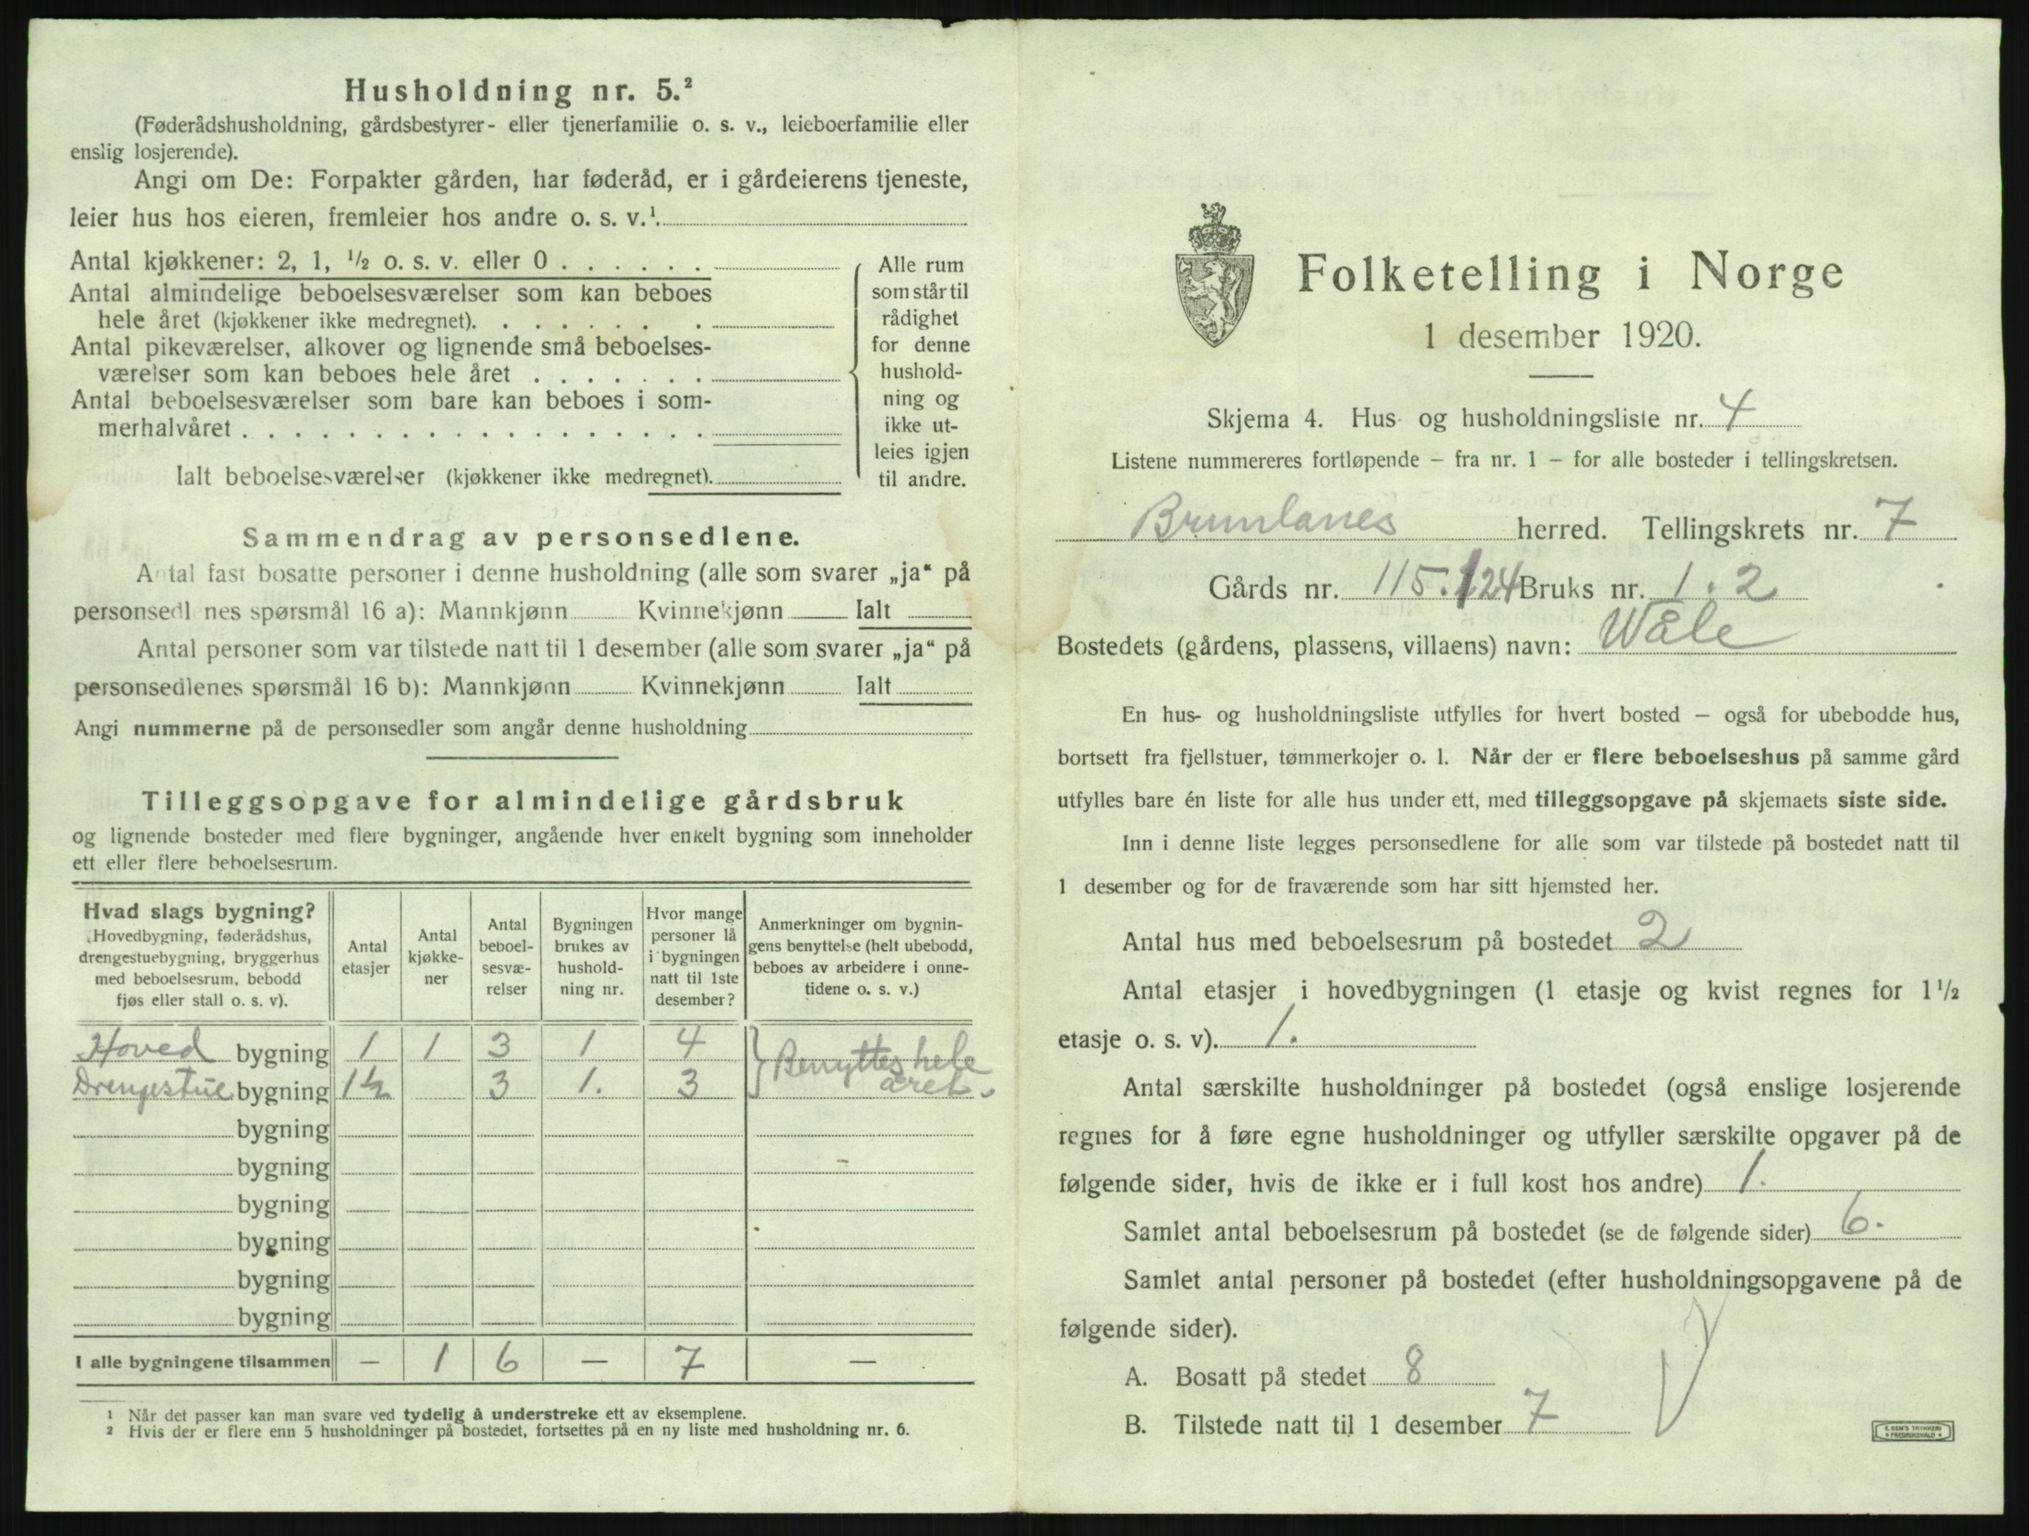 Husholdning nr. 5.²
(Føderådshusholdning, gårdsbestyrer- eller tjenerfamilie o. s. v., leieboerfamilie eller
enslig losjerende).
Angi om De: Forpakter gården, har føderåd, er i gårdeierens tjeneste,
leier hus hos eieren, fremleier hos andre o. s. v.¹
Antal kjøkkener: 2, 1, ½ o. s. v. eller 0 . . . . . .
Antal almindelige beboelsesværelser som kan beboes
hele året (kjøkkener ikke medregnet). . . . . . . .
Antal pikeværelser, alkover og lignende små beboelses-
værelser som kan beboes hele året . . . . . . .
Antal beboelsesværelser som bare kan beboes i som-
merhalvåret . . . . . . . . . . . . . . . . . .
Ialt beboelsesværelser (kjøkkener ikke medregnet).
Alle rum
som står til
rådighet
for denne
hushold-
ning og
ikke ut-
leies igjen
til andre.
Sammendrag av personsedlene.
Antal fast bosatte personer i denne husholdning (alle som svarer „ja“ på
personsedlenes spørsmål 16 a): Mannkjønn Kvinnekjønn Ialt
Antal personer som var tilstede natt til 1 desember (alle som svarer „ja“ på
personsedlenes spørsmål 16 b): Mannkjønn Kvinnekjønn Ialt
Angi nummerne på de personsedler som angår denne husholdning
Tilleggsopgave for almindelige gårdsbruk
og lignende bosteder med flere bygninger, angående hver enkelt bygning som inneholder
ett eller flere beboelsesrum.
Hvad slags bygning?
(Hovedbygning, føderådshus,
drengestuebygning, bryggerhus
med beboelsesrum, bebodd
fjøs eller stall o. s. v).
Antal
etasjer
Antal
kjøkke-
ner
Antal
beboel-
sesvæ-
relser
Bygningen
brukes av
hushold-
ning nr.
Hvor mange
personer lå
i bygningen
natt til 1ste
desember?
Anmerkninger om bygnin-
gens benyttelse (helt ubebodd,
beboes av arbeidere i onne-
tidene o. s. v.)
Hoved bygning 1 1 3 1 4 } Benyttes hele
Drengestue bygning 1½ 3 1. 3 året.
bygning
bygning
bygning
bygning
bygning
bygning
I alle bygningene tilsammen — 1 6 — 7 —
¹ Når det passer kan man svare ved tydelig å understreke ett av eksemplene.
² Hvis der er flere enn 5 husholdninger på bostedet, fortsettes på en ny liste med husholdning nr. 6.
Folketelling i Norge
1 desember 1920.
Skjema 4. Hus- og husholdningsliste nr. 4
Listene nummereres fortløpende – fra nr. 1 – for alle bosteder i tellingskretsen.
Brunlanes herred. Tellingskrets nr. 7
Gårds nr. 115.124 Bruks nr. 1. 2
Bostedets (gårdens, plassens, villaens) navn: Wåle
En hus- og husholdningsliste utfylles for hvert bosted – også for ubebodde hus,
bortsett fra fjellstuer, tømmerkojer o. l. Når der er flere beboelseshus på samme gård
utfylles bare én liste for alle hus under ett, med tilleggsopgave på skjemaets siste side.
Inn i denne liste legges personsedlene for alle som var tilstede på bostedet natt til
1 desember og for de fraværende som har sitt hjemsted her.
Antal hus med beboelsesrum på bostedet 2
Antal etasjer i hovedbygningen (1 etasje og kvist regnes for 1½
etasje o. s. v). 1.
Antal særskilte husholdninger på bostedet (også enslige losjerende
regnes for å føre egne husholdninger og utfyller særskilte opgaver på de
følgende sider, hvis de ikke er i full kost hos andre) 1.
Samlet antal beboelsesrum på bostedet (se de følgende sider) 6.
Samlet antal personer på bostedet (efter husholdningsopgavene på de
følgende sider).
A. Bosatt på stedet 8
B. Tilstede natt til 1 desember 7